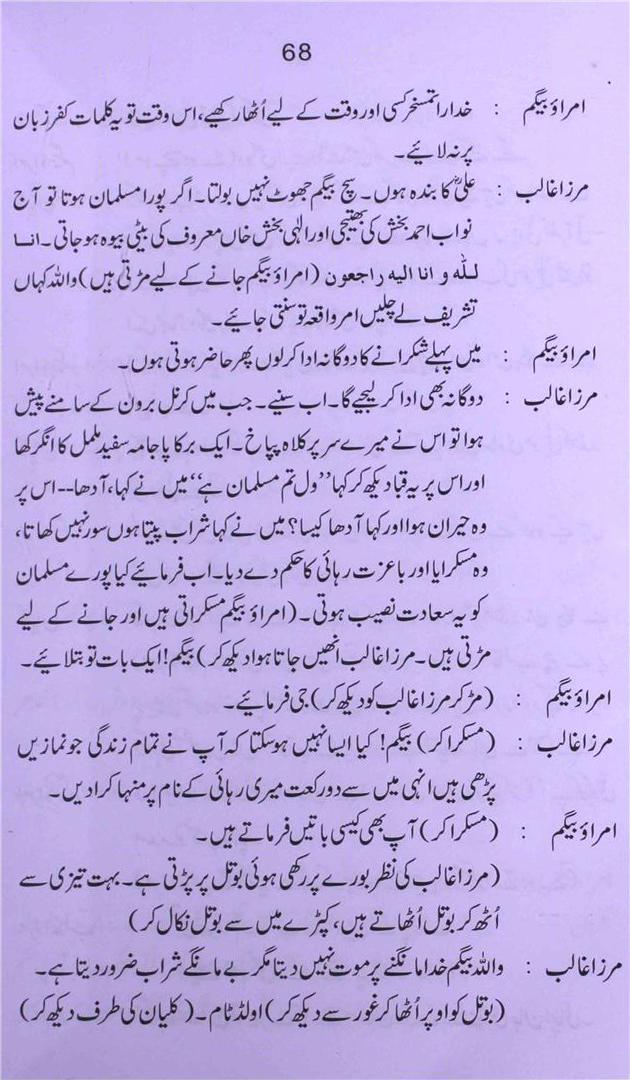 68
امراؤ بیگم : خدارا تمسخر کسی اور وقت کے لیے اُٹھا رکھیے، اس وقت تو یہ کلمات کفر زبان
پر نہ لائیے۔
مرزا غالب : علیؓ کا بندہ ہوں۔ سچ بیگم جھوٹ نہیں بولتا۔ اگر پورا مسلمان ہوتا تو آج
نواب احمد بخش کی بھتیجی اور الٰہی بخش خاں معروف کی بیٹی بیوہ ہو جاتی۔ انا
للہ و انا الیہ راجعون (امراؤ بیگم جانے کے لیے مڑتی ہیں) واللہ کہاں
تشریف لے چلیں امر واقعہ تو سنتی جائیے۔
امراؤ بیگم : میں پہلے شکرانے کا دوگانہ ادا کرلوں پھر حاضر ہوتی ہوں۔
مرزا غالب : دوگانہ بھی ادا کر لیجیے گا۔ اب سنیے۔ جب میں کرنل برون کے سامنے پیش
ہوا تو اس نے میرے سر پر کلاہ پپاخ۔ ایک برکا پاجامہ سفید ململ کا انگرکھا
اور اس پر یہ قبا دیکھ کر کہا ’’ول تم مسلمان ہے‘‘ میں نے کہا، آدھا-- اس پر
وہ حیران ہوا اور کہا آدھا کیسا؟ میں نے کہا شراب پیتا ہوں سور نہیں کھاتا،
وہ مسکرایا اور باعزت رہائی کا حکم دے دیا۔ اب فرمائیے کیا پورے مسلمان
کو یہ سعادت نصیب ہوتی۔ (امراؤ بیگم مسکراتی ہیں اور جانے کے لیے
مڑتی ہیں۔ مرزا غالب انھیں جاتا ہوا دیکھ کر) بیگم! ایک بات تو بتلائیے۔
امراؤ بیگم : (مڑ کر مرزا غالب کو دیکھ کر) جی فرمائیے۔
مرزا غالب : (مسکرا کر) بیگم! کیا ایسا نہیں ہو سکتا کہ آپ نے تمام زندگی جو نمازیں
پڑھی ہیں انہی میں سے دو رکعت میری رہائی کے نام پر منہا کرا دیں۔
امراؤ بیگم : (مسکرا کر) آپ بھی کیسی باتیں فرماتے ہیں۔
(مرزا غالب کی نظر بورے پر رکھی ہوئی بوتل پر پڑتی ہے۔ بہت تیزی سے
اُٹھ کر بوتل اُٹھاتے ہیں، کپڑے میں سے بوتل نکال کر)
مرزا غالب : واللہ بیگم خدا مانگنے پر موت نہیں دیتا مگر بے مانگے شراب ضرور دیتا ہے۔
(بوتل کو اوپر اُٹھا کر غور سے دیکھ کر) اولڈ ٹام۔ (کلیان کی طرف دیکھ کر)